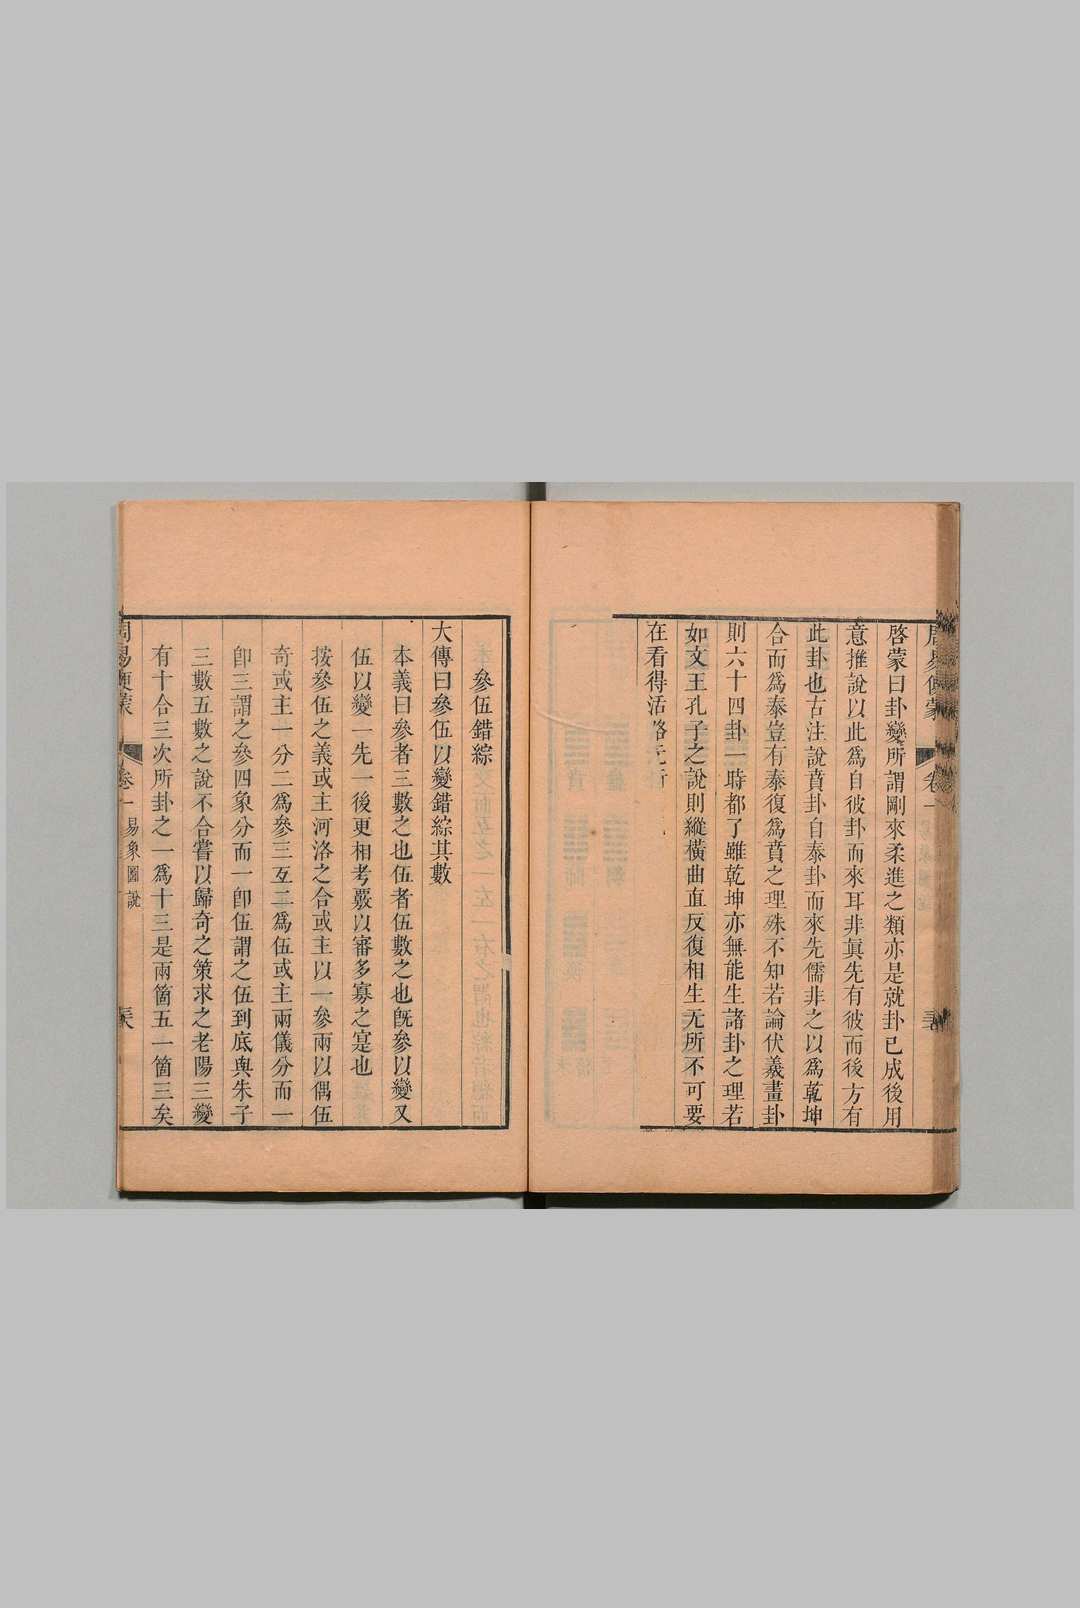 周易便蒙
卷一
啓蒙曰卦變所謂剛來柔進之類亦是就卦已成後用
意推說以此爲自彼卦而來耳非眞先有彼而後方有
此卦也古注說賁卦自泰卦而來先儒非之以爲乾坤
合而爲泰豈有泰復爲賁之理殊不知若論伏羲畫卦
則六十四卦一時都了雖乾坤亦無能生諸卦之理若
如文王孔子之說則縱橫曲直反復相生无所不可要
在看得活絡无所
參伍錯綜
大傳曰參伍以變錯綜其數
本義曰參者三數之也伍者伍數之也旣參以變又
伍以變一先一後更相考覈以審多寡之寔也
按參伍之義或主河洛之合或主以一參兩以偶伍
奇或主一分二爲參三互二爲伍或主兩儀分而一
卽三謂之參四象分而一卽伍謂之伍到底與朱子
三數五數之說不合嘗以歸奇之策求之老陽三變
有十合三次所卦之一爲十三是兩箇五一箇三矣
周易便蒙
卷一
易象圖說